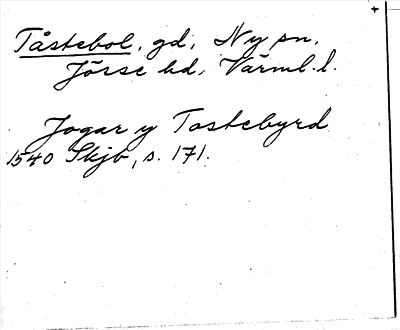 Tåstebol, gd, Ny sn,
Jösse hd, Värml. l.
Jogar y Tostebyrd
1540 Skjb, s. 171.